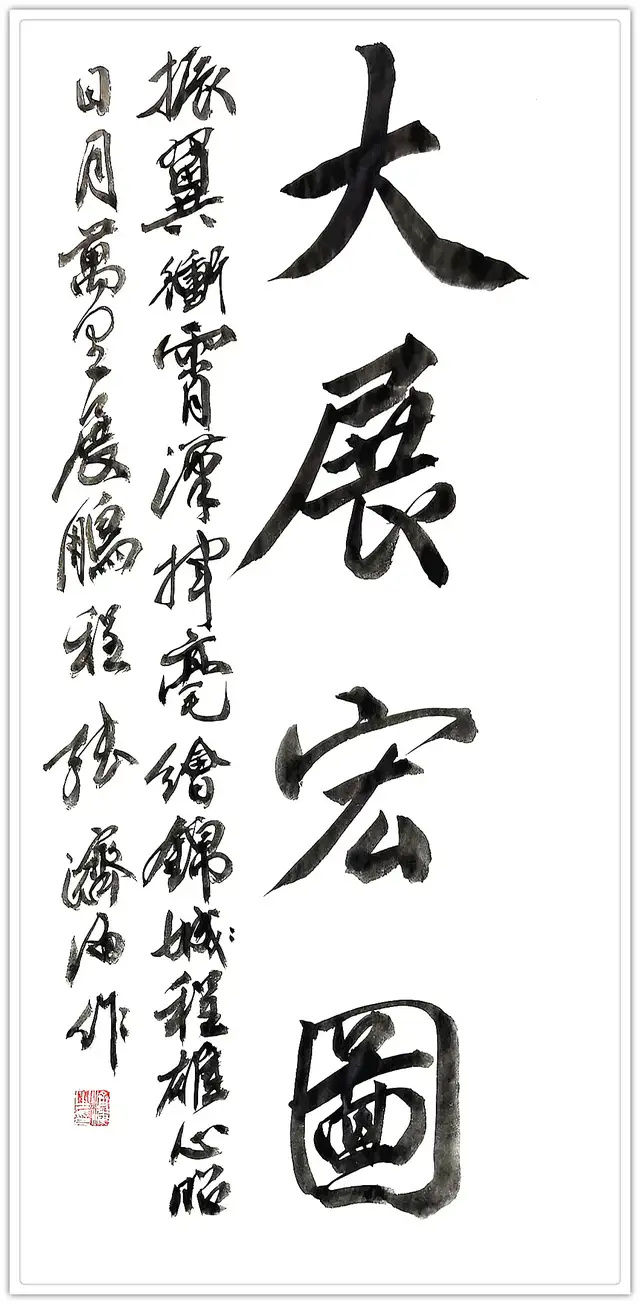 大展宏圖
振翼衝霄漢揮毫繪錦城程雄心昭
日月萬里展鵬程 濟海作